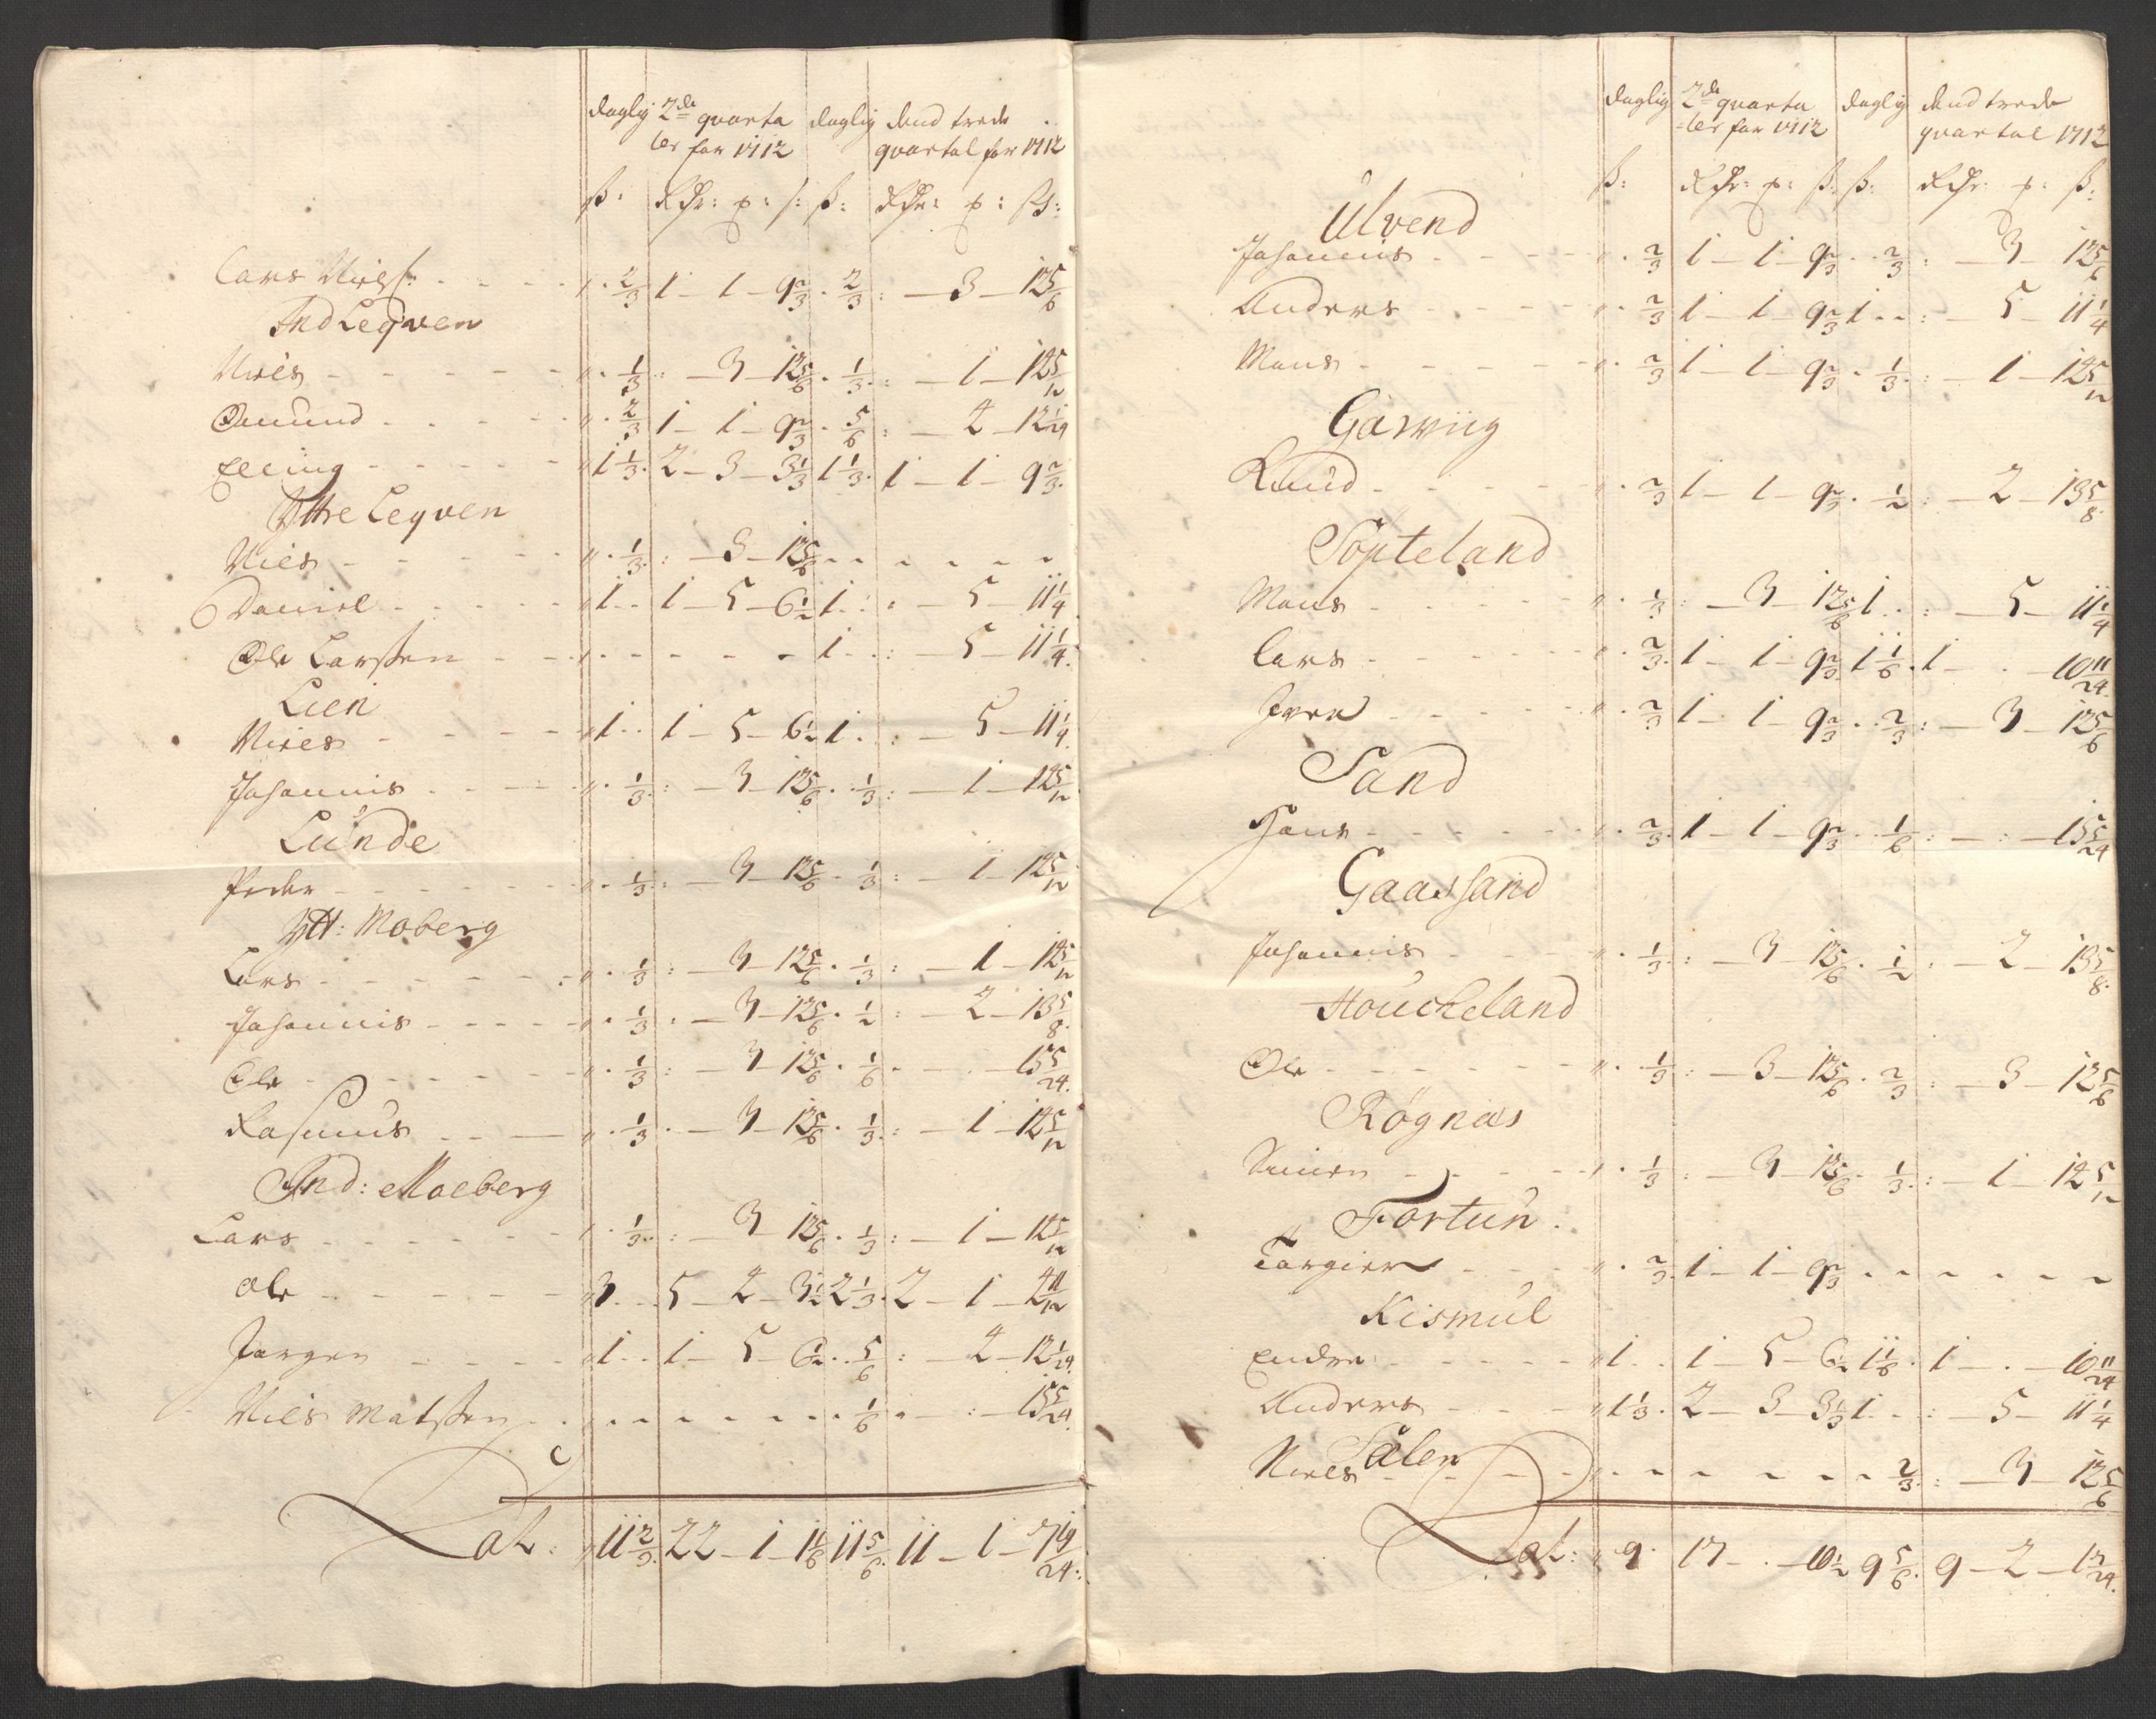 daglig 2de quarta daglig dend trede
ler for 1712 quartal for 1712
ß: Rdr: p: ß: ß: Rdr: p: ß:
Lars Nielß: - - - - „ · 2/3 1 - 1 - 9 2/3 · 2/3 : - 3 - 12 5/6
Ind Leqven
Niels - - - - „ · 1/3 : - 3 - 12 5/6 · 1/3 : - 1 - 14 5/12
Omund - - - - „ · 2/3 1 - 1 - 9 2/3 · 5/6 : - 4 - 12 1/24
Elling - - - - „ 1 1/3 · 2 - 3 - 3 1/3 1 1/3 · 1 - 1 - 9 2/3
Ytre Leqven
Niels - - - - „ · 1/3 : - 3 - 12 5/6 - - - - - -
Daniel - - - - „ 1 · · 1 - 5 - 6 1/2 1 · · : - 5 - 11 1/4
Ole Larßen - - - - - - - 1 · · : - 5 - 11 1/4
Lien
Niels - - - - „ 1 · · 1 - 5 - 6 1/2 1 · · : - 5 - 11 1/4
Johannis - - - - „ · 1/3 : - 3 - 12 5/6 · 1/3 : - 1 - 14 5/12
Lunde
Peder - - - - „ · 1/3 : - 3 - 12 5/6 · 1/3 : - 1 - 14 5/12
Ytt: Moberg
Lars - - - - „ · 1/3 : - 3 - 12 5/6 · 1/3 : - 1 - 14 5/12
Johannis - - - - „ · 1/3 · - 3 - 12 5/6 · 1/2 : - 2 - 13 5/8
Ole - - - - „ · 1/3 : 3 - 12 5/6 · 1/6 - - - 15 5/24
Rasmus - - - - „ · 1/3 · - 3 - 12 5/6 · 1/3 : - 1 - 14 5/12
Ind: Moeberg
Lars - - - - „ · 1/3 : - 3 12 5/6 · 1/3 : - 1 - 14 5/12
Ole - - - - „ 3 · · 5 - 4 - 3 1/2 2 1/3 · 2 - 1 - 4 11/12
Jørgen - - - - „ 1 · · 1 - 5 - 6 1/2 · 5/6 : - 4 - 12 1/24
Niels Matßen - - - - - - - 1/6 - : - 15 5/24
Lat: „ 11 2/3 · 22 - 1 - 1 1/6 11 5/6 · 11 - 1 - 7 19/24
daglig 2de quarta daglig dend trede
-ler for 1712 quartal 1712
ß: Rdr: p: ß: ß: Rdr: p: ß:
Ulvend
Johannis - - - - „ · 2/3 1 - 1 - 9 2/3 · 2/3 : - 3 - 12 5/6
Anders - - - - „ · 2/3 1 - 1 - 9 2/3 1 · · : - 5 - 11 1/4
Mons - - - - „ · 2/3 1 - 1 - 9 2/3 · 1/3 : - 1 - 14 5/12
Gåswiig
Knud - - - - „ · 2/3 1 - 1 - 9 2/3 · 1/2 : - 2 - 13 5/8
Søpteland
Mons - - - - „ · 1/3 : - 3 - 12 5/6 1 · · : - 5 - 11 1/4
Lars - - - - „ · 2/3 · 1 - 1 - 9 2/3 1 1/6 · 1 - · - 10 11/24
Iver - - - - „ · 2/3 1 - 1 - 9 2/3 · 2/3 : - 3 - 12 5/6
Sand
Hans - - - - „ · 2/3 · 1 - 1 - 9 2/3 · 1/6 : - : - 15 5/24
Gaassand
Johannis - - - - „ · 1/3 : - 3 - 12 5/6 · 1/2 : - 2 - 13 5/8
Houcheland
Ole - - - - „ · 1/3 : - 3 - 12 5/6 · 2/3 : - 3 - 12 5/6
Røgnæs
- - - - „ · 1/3 : - 3 - 12 5/6 · 1/3 : - 1 - 14 5/12
Fortun
Torgier - - - - „ · 2/3 · 1 - 1 - 9 2/3 - - - - - -
Kismul
Endre - - - - „ 1 · · 1 - 5 - 6 1/2 1 1/6 · 1 - · - 10 11/24
Anders - - - - „ 1 1/3 · 2 - 3 - 3 1/3 1 · · : - 5 - 11 1/4
Sælen
Niels - - - - - - - 2/3 : - 3 - 12 5/6
Lat: „ 9 · 17 - · - 10 1/2 9 5/6 · 9 - 2 - 1 17/24